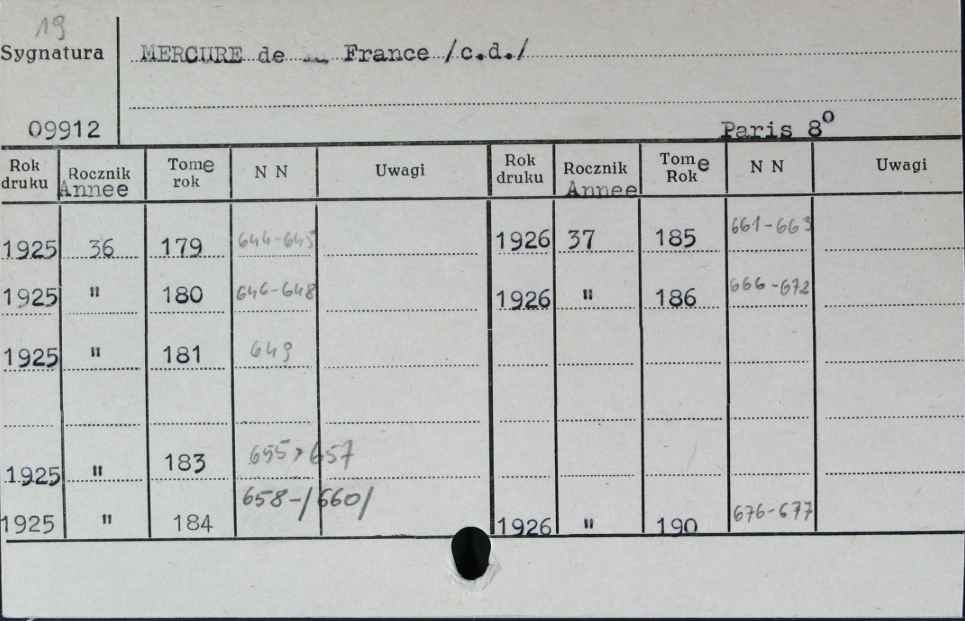 19
Sygnatura MERCURE de France /c.d./
09912 Paris 8º
Rok druku Rocznik Annee Tome rok N N Uwagi Rok druku Rocznik Annee Tome Rok N N Uwagi
1925 36 179 644-645 1926 37 185 661-663
1925 " 180 646-648 1926 " 186 666-672
1925 " 181 649
1925 " 183 655, 657
1925 " 184 658-/660/ 1926 " 190 676-677